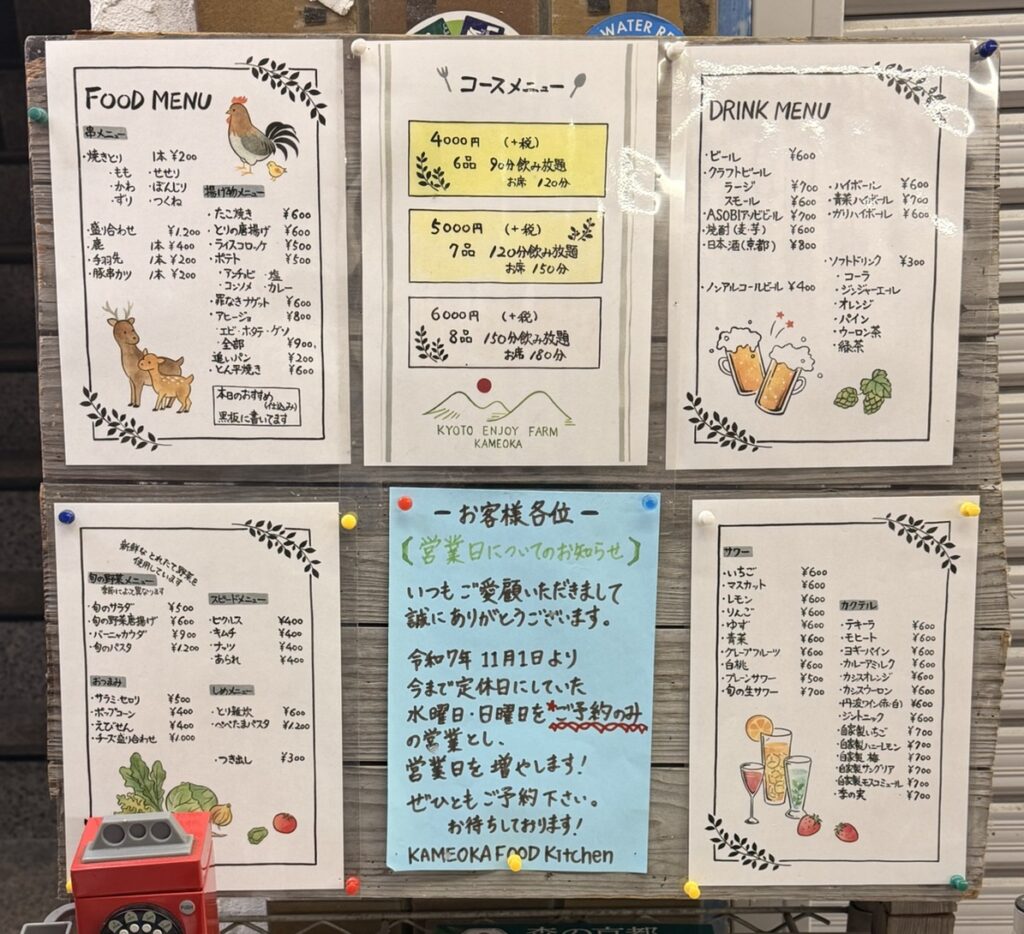 WATER RE
FOOD MENU
串メニュー
・焼きとり 1本 ¥200
もも ・せせり
・かわ ・ぼんじり
・ずり ・つくね
・盛り合わせ ¥1,200
・鹿 1本 ¥400
・手羽先 1本 ¥200
・豚串カツ 1本 ¥200
揚げ物メニュー
・たこ焼き ¥600
・とりの唐揚げ ¥600
・ライスコロッケ ¥500
・ポテト ¥500
・アンチョビ ・塩
・コンソメ ・カレー
・罪なきナゲット ¥600
・アヒージョ ¥800
・エビ・ホタテ・ゲソ
・全部 ¥900
追いパン ¥200
・とん平焼き ¥600
本日のおすすめ
(仕込み)
黒板に書いてます
コースメニュー
4000円 (+税)
6品 90分飲み放題
お席 120分
5000円 (+税)
7品 120分飲み放題
お席 150分
6000円 (+税)
8品 150分飲み放題
お席 180分
KYOTO ENJOY FARM
KAMEOKA
DRINK MENU
・ビール ¥600
・クラフトビール
ラージ ¥700
スモール ¥600
・ASOBIアソビビール ¥700
・焼酎(麦・芋) ¥600
・日本酒(京都) ¥800
・ノンアルコールビール ¥400
・ハイボール ¥600
・青菜ハイボール ¥700
・ガリハイボール ¥600
・ソフトドリンク ¥300
・コーラ
・ジンジャーエール
・オレンジ
・パイン
・ウーロン茶
・緑茶
新鮮なとれたて野菜を
使用しています
旬の野菜メニュー
季節によって異なります
・旬のサラダ ¥500
・旬の野菜唐揚げ ¥600
・バーニャカウダ ¥900
・旬のパスタ ¥1,200
おつまみ
・サラミ・セロリ ¥500
・ポップコーン ¥400
・えびせん ¥400
・チーズ盛り合わせ ¥1,000
スピードメニュー
・ピクルス ¥400
・キムチ ¥400
・ナッツ ¥400
・あられ ¥400
しめメニュー
・とり雑炊 ¥600
・ぺぺたまパスタ ¥1,200
・つき出し ¥300
ーお客様各位ー
【営業日についてのお知らせ】
いつもご愛顧いただきまして
誠にありがとうございます。
令和7年 11月1日より
今まで定休日にしていた
水曜日・日曜日をご予約のみ
の営業とし、
営業日を増やします!
ぜひともご予約下さい。
お待ちしております!
KAMEOKA FOOD Kitchen
サワー
・いちご ¥600
・マスカット ¥600
・レモン ¥600
・りんご ¥600
・ゆず ¥600
・青菜 ¥600
・グレープフルーツ ¥600
・白桃 ¥600
・プレーンサワー ¥500
・旬の生サワー ¥700
カクテル
・テキーラ ¥600
・モヒート ¥600
・ヨギーパイン ¥600
・カルーアミルク ¥600
・カシスオレンジ ¥600
・カシスウーロン ¥600
・丹波ワイン(赤・白) ¥600
・ジントニック ¥600
・自家製いちご ¥700
・自家製ハニーレモン ¥700
・自家製 梅 ¥700
・自家製サングリア ¥700
・自家製モスコミュール ¥700
・季の実 ¥700
PUSH
森の京都